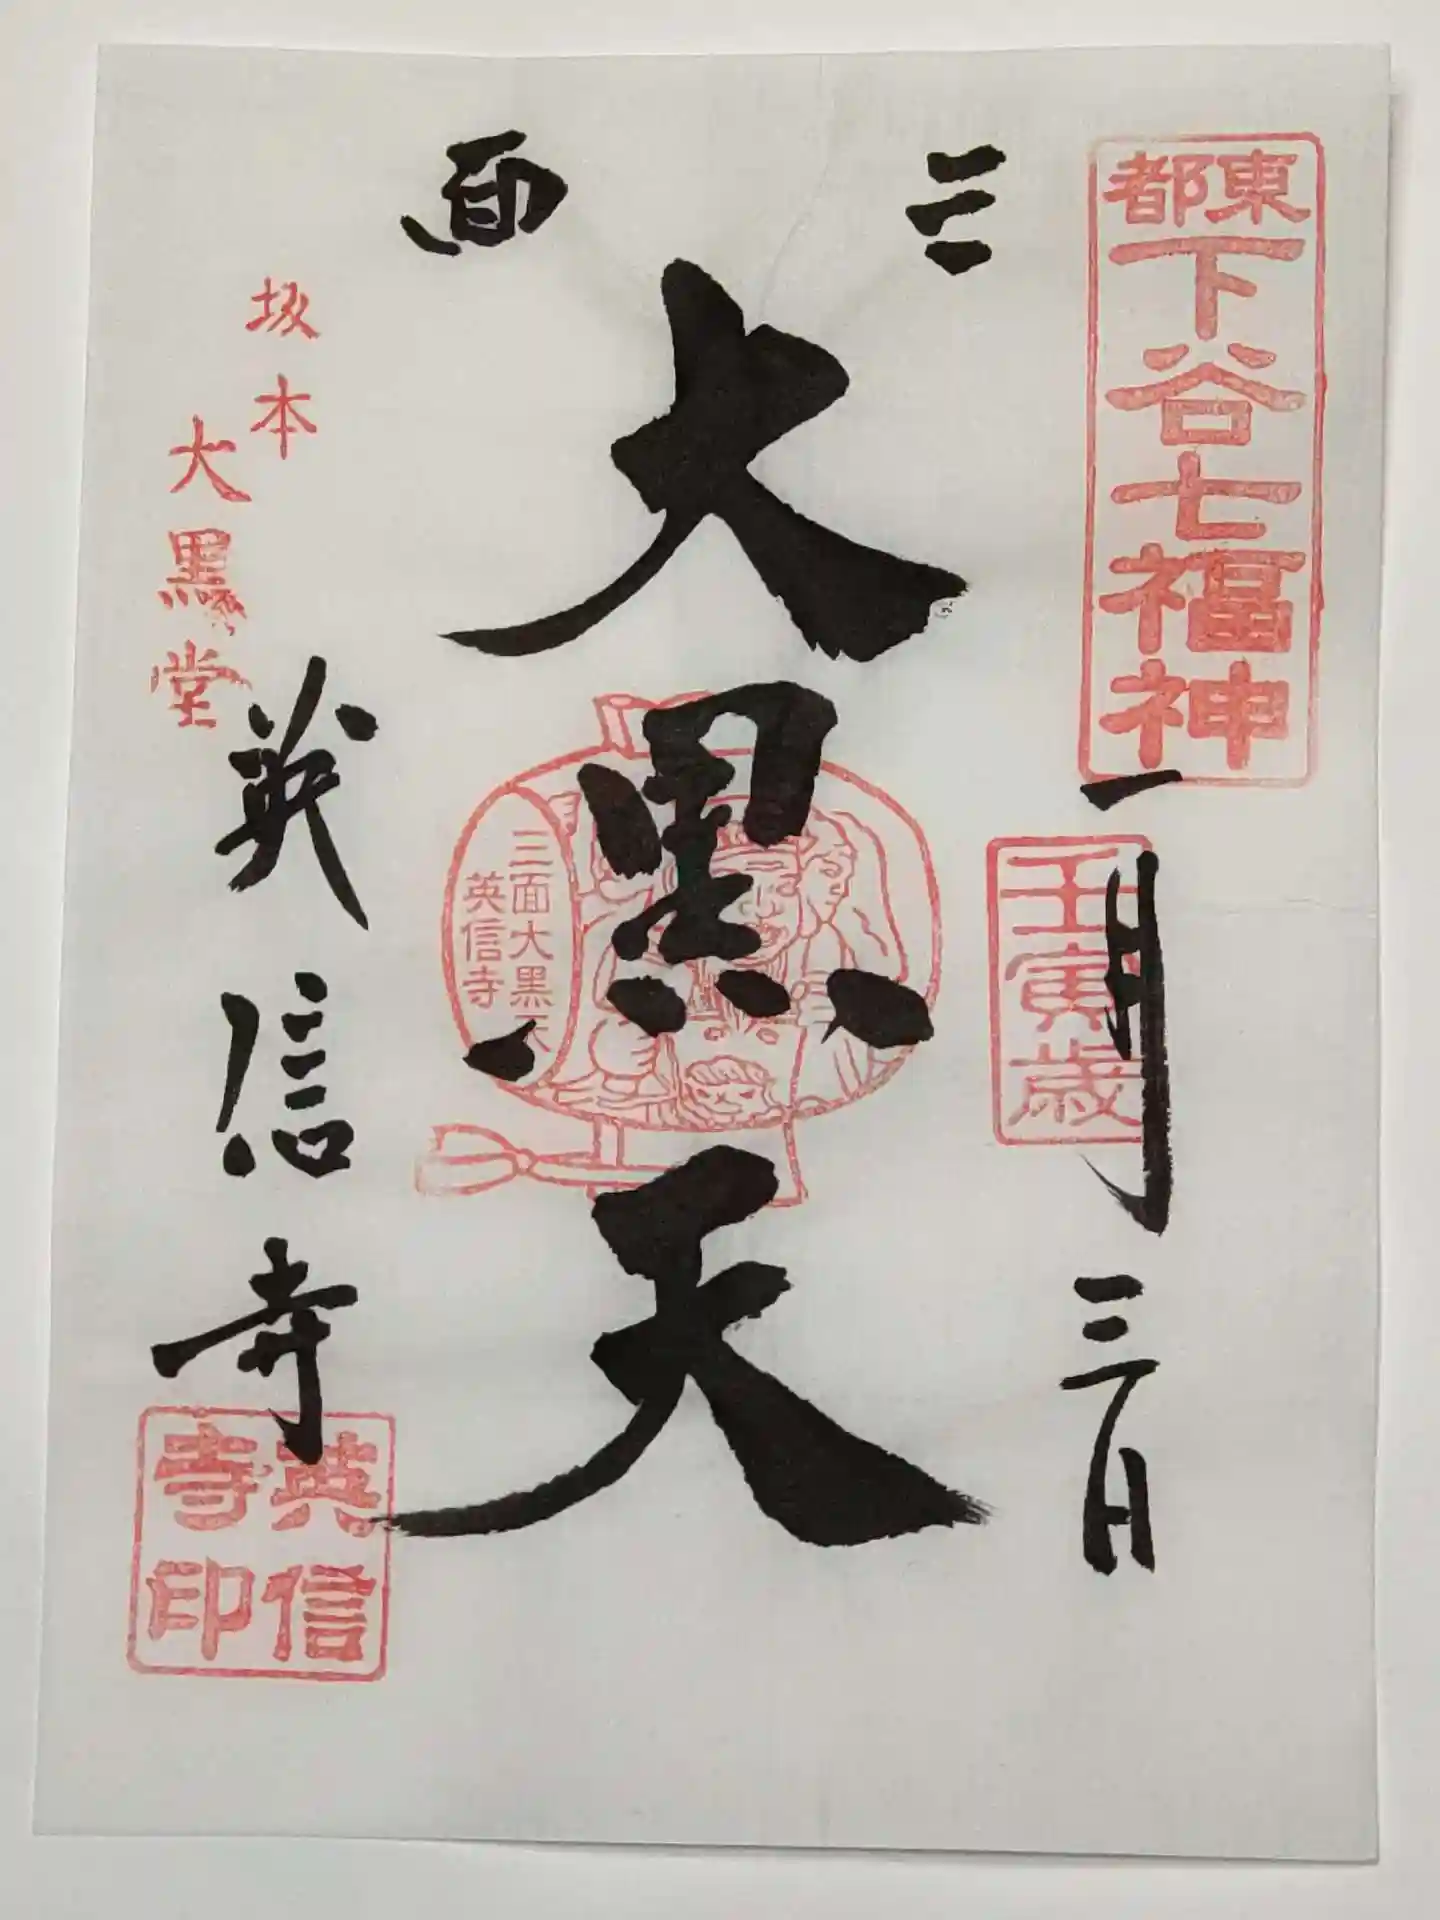 東都
下谷七福神
壬寅歳
一月三日
三面
大黒天
三面大黒天
英信寺
坂本
大黒堂
英信寺
英信寺印